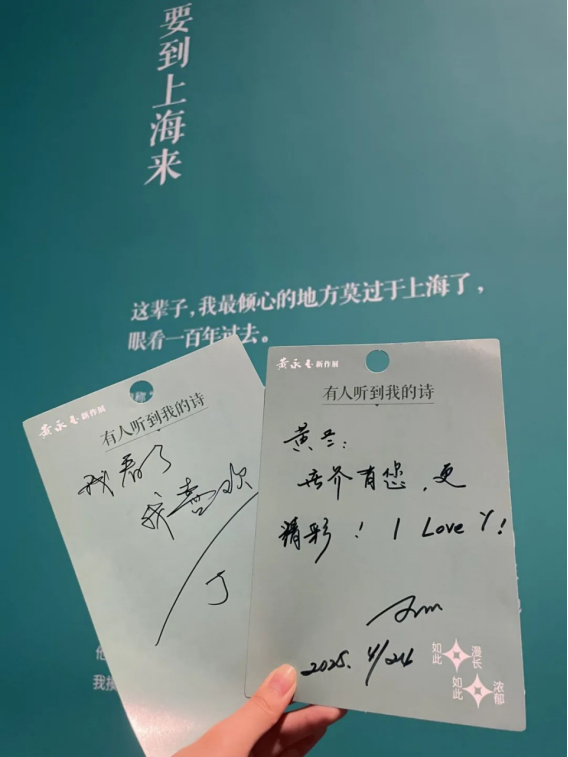 要到上海来
这辈子,我最倾心的地方莫过于上海了,
眼看一百年过去。
黄永玉新作展
有人听到我的诗
我看了
我喜欢
J
黄永玉新作展
有人听到我的诗
黄兰:
世界有您,更
精彩!I Love Y!
2025.4/24
如此漫长
如此浓郁